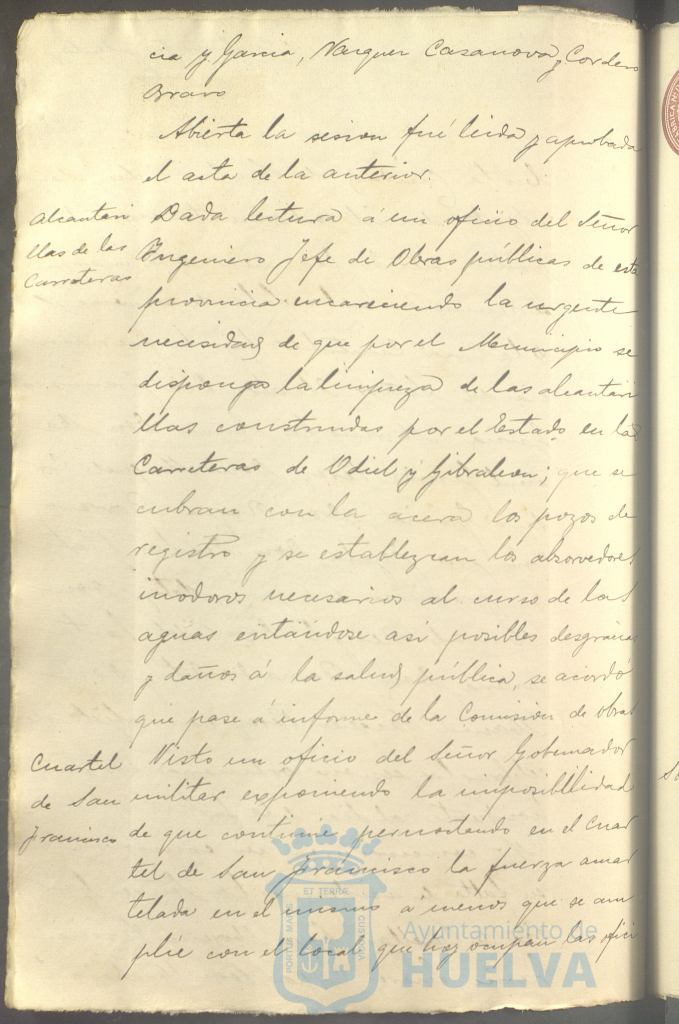 cia y Garcia, Vazquez Casanova y Cordero
Bravo
Abierta la sesion fué leida y aprobada
el acta de la anterior.
Alcantari
llas de las
Carreteras
Dada lectura á un oficio del Señor
Ingeniero Jefe de Obras públicas de esta
provincia encareciendo la urgente
necesidad de que por el Municipio se
disponga la limpieza de las alcantari
llas construidas por el Estado en las
Carreteras de Odiel y Gibraleon; que se
cubran con la acera los pozos de
registro y se establezcan los absorvedores
inodoros necesarios al curso de las
aguas evitandose asi posibles desgracias
y daños á la salud pública, se acordó
que pase á informe de la Comision de obras
Cuartel
de San
Francisco
Visto un oficio del Señor Gobernador
militar exponiendo la imposibilidad
de que continue pernoctando en el Cuar
tel de San Francisco la fuerza acuar
telada en el mismo á menos que se am
plie con el local que hoy ocupan las ofici
PORTUS MARIS
ET TERRÆ
CUSTODIA
Ayuntamiento de
HUELVA